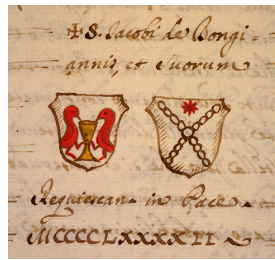 ✝ S. Jacobi de Bongi-
annis, et suorum
Requiescan. in Pace.
MCCCCLXXXXII